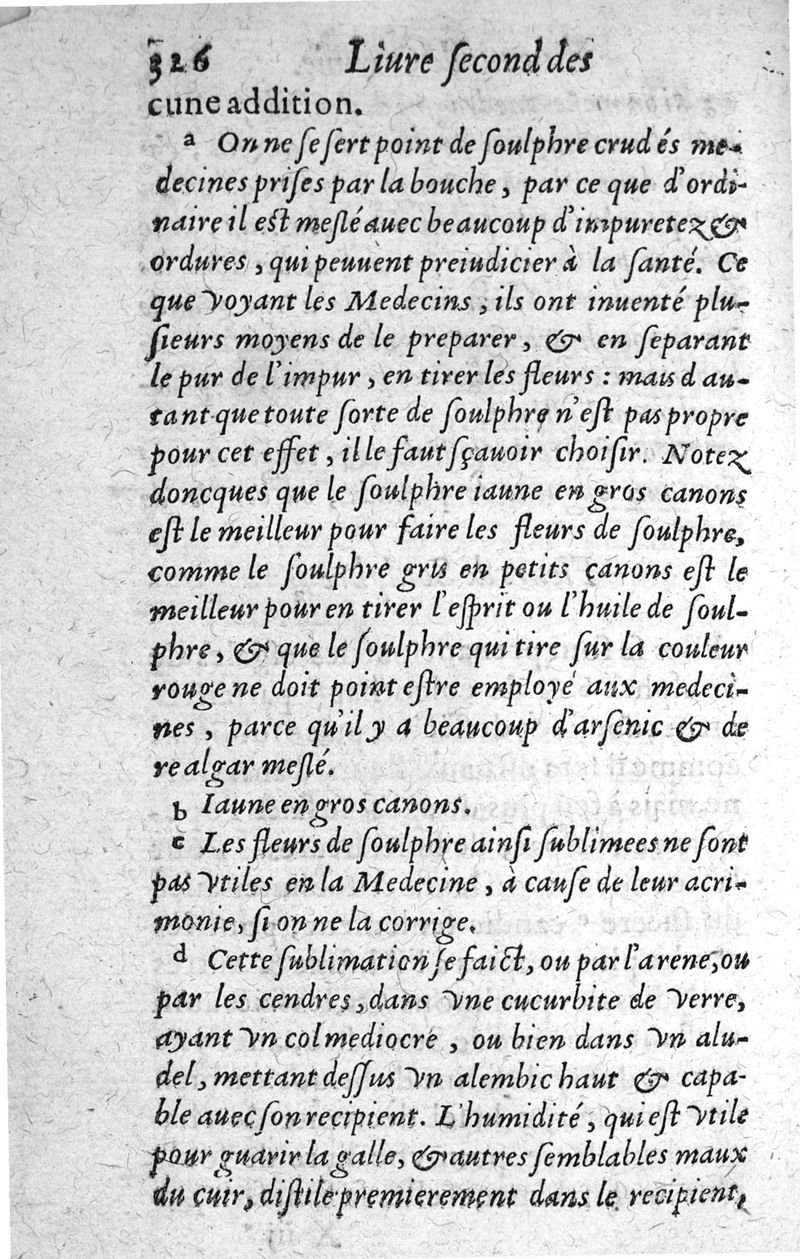 326 Liure ſecond des
cune addition.
a On ne ſe ſert point de ſoulphre crud és me-
decines priſes par la bouche, par ce que d'ordi-
naire il eſt meſlé auec beaucoup d'impuretez &
ordures, qui peuuent preiudicier à la ſanté. Ce
que voyant les Medecins, ils ont inuenté plu-
ſieurs moyens de le preparer, & en ſeparant
le pur de l'impur, en tirer les fleurs : mais d au-
tant que toute ſorte de ſoulphre n'eſt pas propre
pour cet effet, il le faut ſçauoir choiſir. Notez
doncques que le ſoulphre iaune en gros canons
eſt le meilleur pour faire les fleurs de ſoulphre,
comme le ſoulphre gris en petits canons eſt le
meilleur pour en tirer l'eſprit ou l'huile de ſoul-
phre, & que le ſoulphre qui tire ſur la couleur
rouge ne doit point eſtre employé aux medeci-
nes, parce qu'il y a beaucoup d'arſenic & de
realgar meſlé.
b Iaune en gros canons.
c Les fleurs de ſoulphre ainſi ſublimees ne ſont
pas vtiles en la Medecine, à cauſe de leur acri-
monie, ſi on ne la corrige.
d Cette ſublimation ſe faict, ou par l'arene, ou
par les cendres, dans vne cucurbite de verre,
ayant vn col mediocre, ou bien dans vn alu-
del, mettant deſſus vn alembic haut & capa-
ble auec ſon recipient. L'humidité, qui eſt vtile
pour guarir la galle, & autres ſemblables maux
du cuir, diſtile premierement dans le recipient,